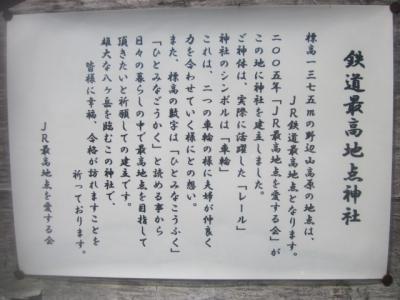 鉄道最高地点神社
標高一三七五mの野辺山高原の地点は、
ＪＲ鉄道最高地点となります。
二〇〇五年「ＪＲ最高地点を愛する会」が
この地に神社を建立しました。
ご神体は、実際に活躍した「レール」
神社のシンボルは「車輪」
これは、二つの車輪の様に夫婦が仲良く
力を合わせていく様にとの想い。
また、標高の数字は「ひとみなこうふく」
「ひとみなごうかく」と読める事から
日々の暮らしの中で最高地点を目指して
頂きたいと祈願しての建立です。
雄大な八ヶ岳を臨むこの神社で、
皆様に幸福、合格が訪れますことを
祈っております。
ＪＲ最高地点を愛する会